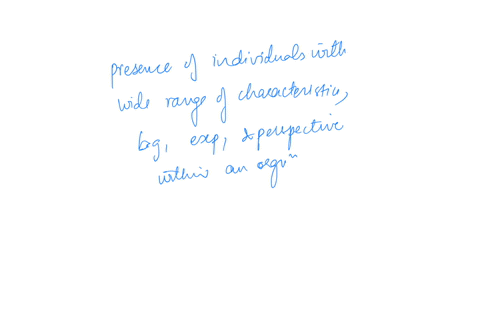 presence of individuals with
wide range of characteristics,
bg, exp, & perspective
within an orgnⁿ